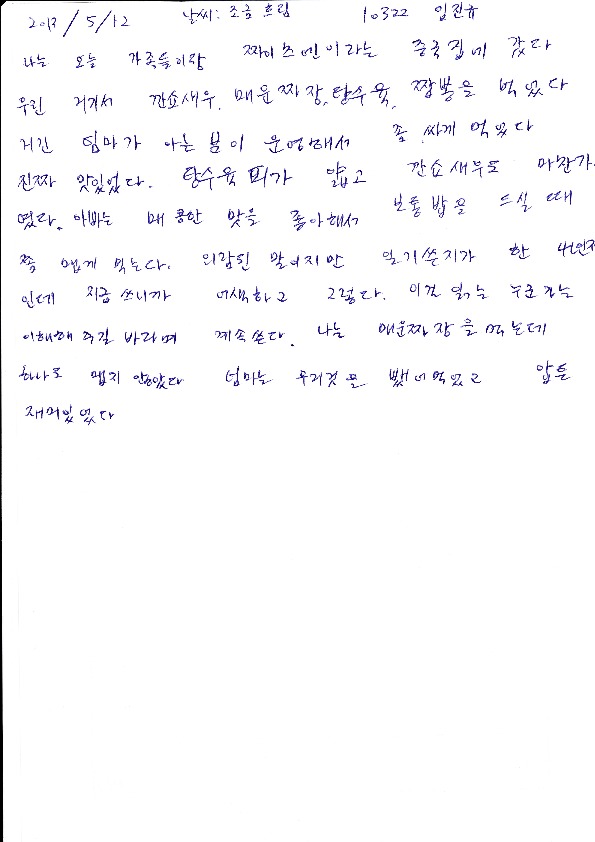 2013/5/12 날씨: 조금 흐림 10322 임진규
나는 오늘 가족들이랑 짜이즈멘이라는 중국집에 갔다
우린 거기서 깐쇼새우, 매운짜장, 탕수육, 짬뽕을 먹었다
거긴 엄마가 아는 분이 운영해서 좀 싸게 먹었다
진짜 맛있었다. 탕수육 피가 얇고 깐쇼새우도 마찬가
였다. 아빠는 매콤한 맛을 좋아해서 보통 밥을 드실 때
쫌 맵게 먹는다. 의감인 말이지만 일기쓴지가 한 4년만
인데 지금 쓰니까 어색하고 그렇다. 이건 읽는 누군가는
이해해 주길 바라며 계속쓴다. 나는 매운짜장을 먹는데
하나도 맵지 않았다 엄마는 우리것을 뺏어먹었고 암튼
재미있었다